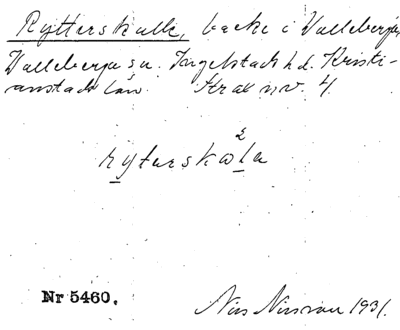 Rytterskulle, backe i Valleberga,
Valleberga sn. Ingelstads hd. Kristi-
anstads län. Strax nv. 4.
2
ryterskola
Nr 5460.
Nils Nilsson 1931.